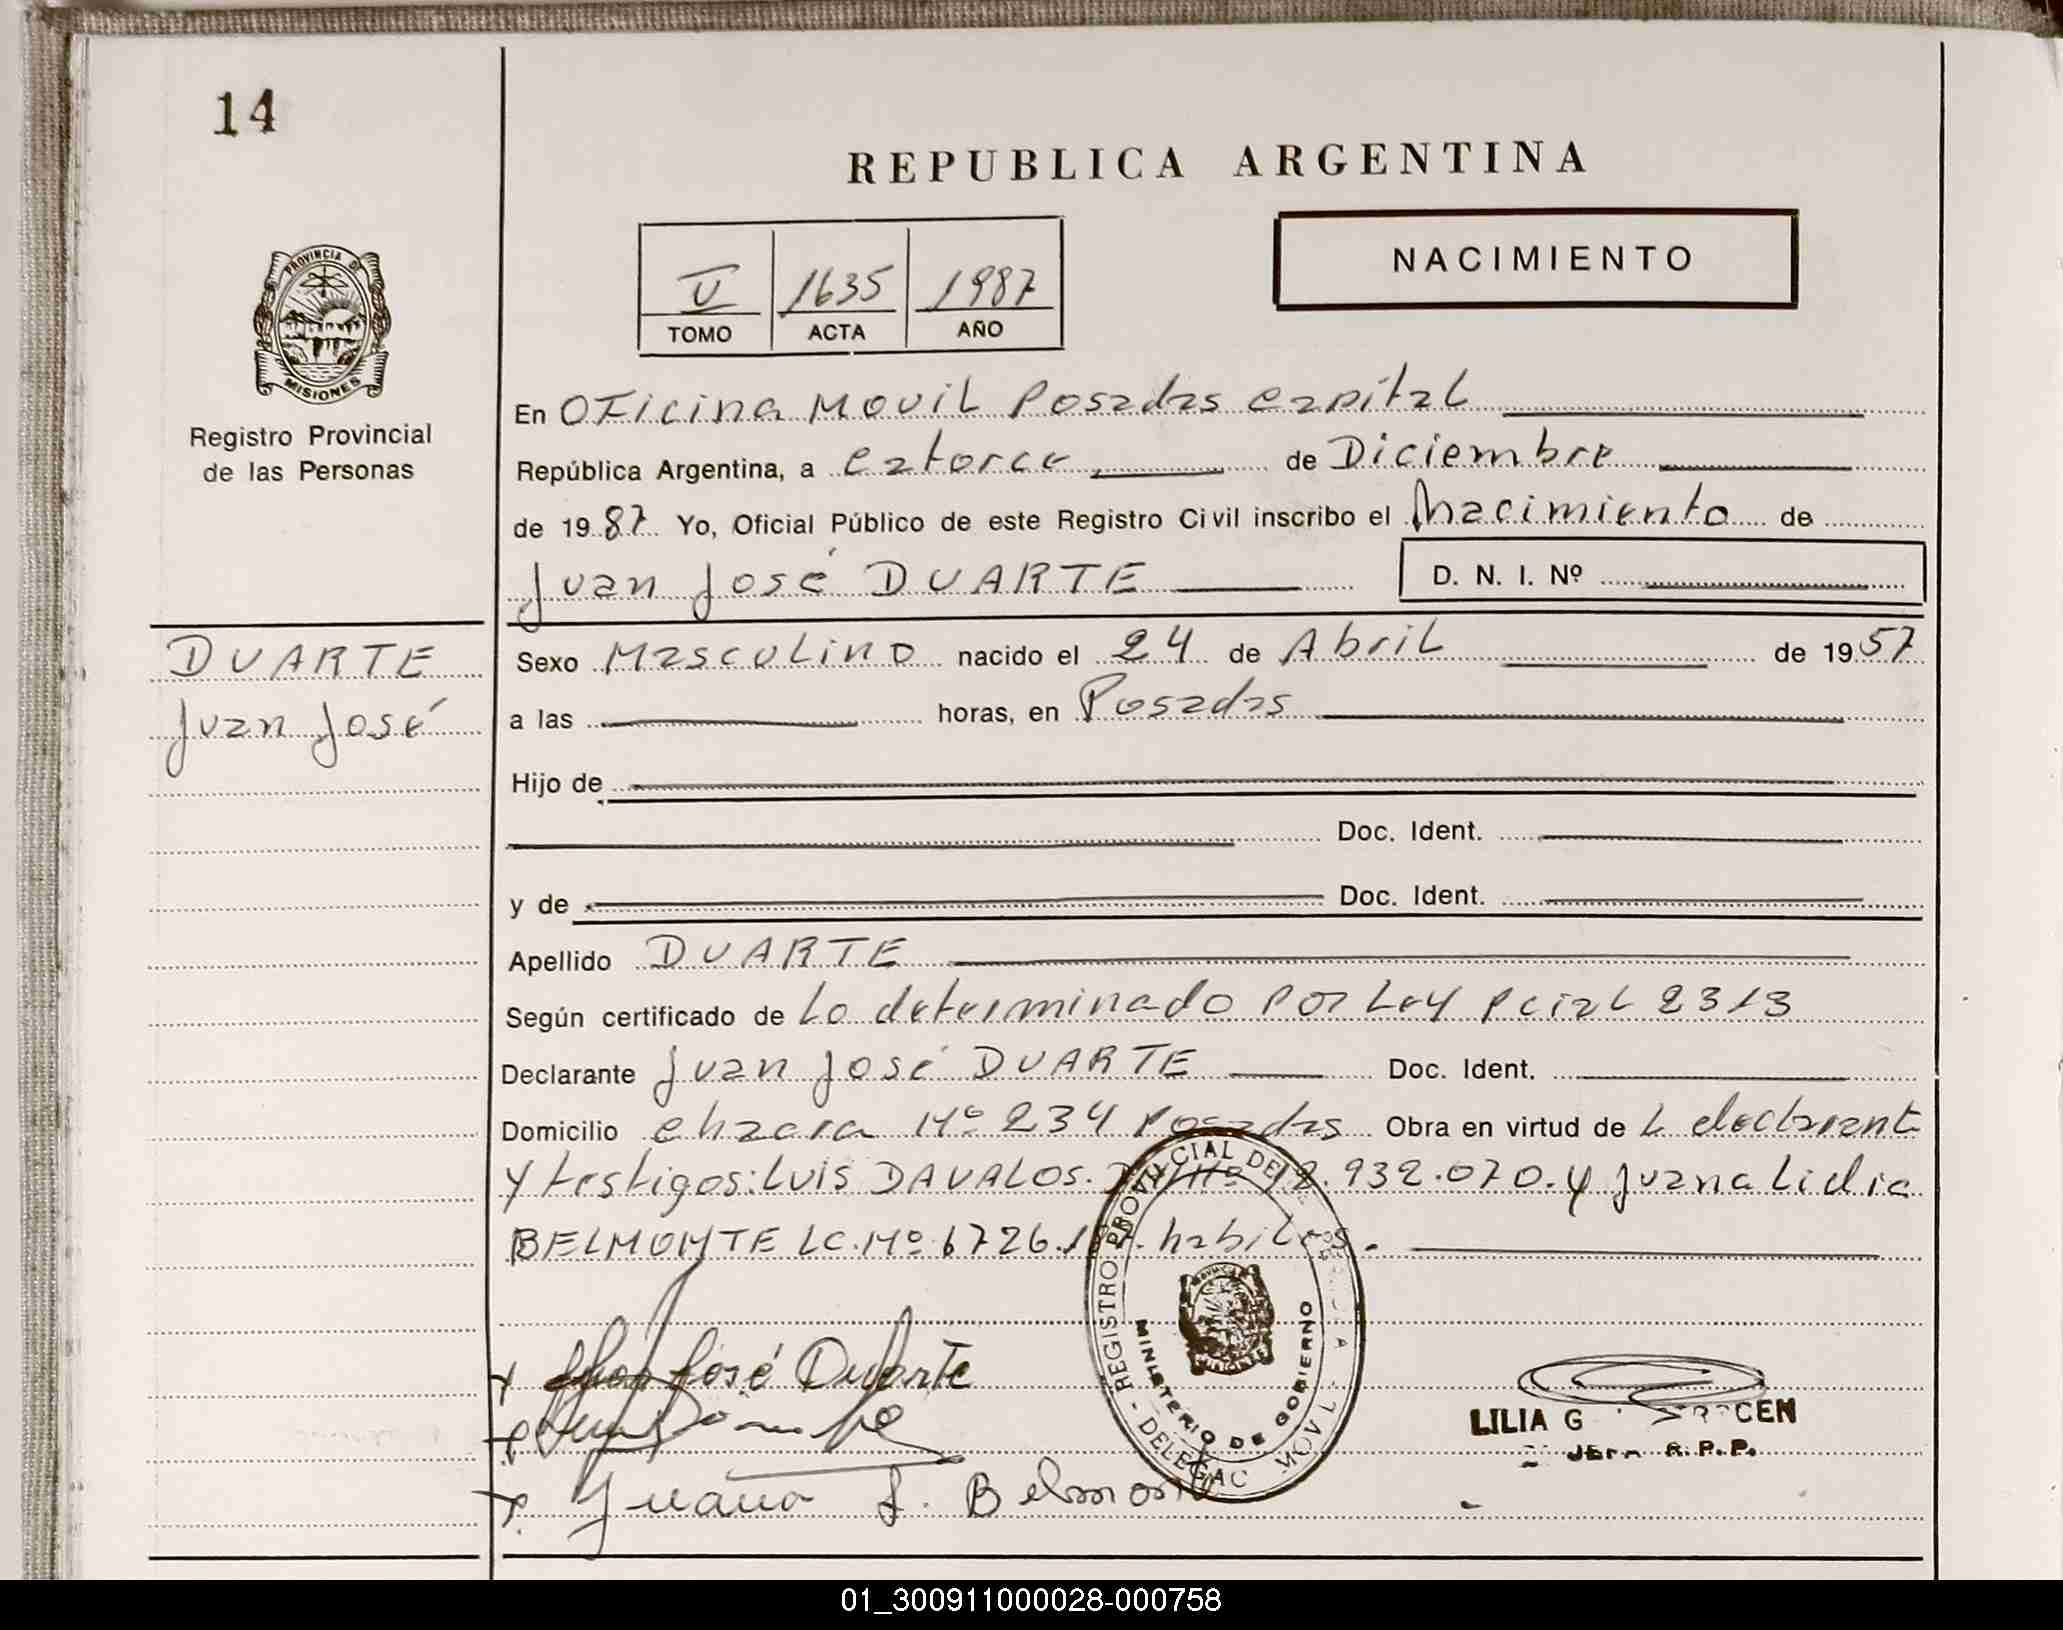 14
REPUBLICA ARGENTINA
NACIMIENTO
V 1635 1987
TOMO ACTA AÑO
PROVINCIA DE
MISIONES
Registro Provincial
de las Personas
En Oficina Movil Posadas capital
República Argentina, a catorce de Diciembre
de 1987 Yo, Oficial Público de este Registro Civil inscribo el Nacimiento de
Juan José DUARTE D. N. I. Nº
DUARTE
Juan José
Sexo Masculino nacido el 24 de Abril de 1957
a las horas, en Posadas
Hijo de
Doc. Ident.
y de Doc. Ident.
Apellido DUARTE
Según certificado de Lo determinado por Ley Pcial 2313
Declarante Juan José DUARTE Doc. Ident.
Domicilio Nº 234 Posadas Obra en virtud de L declarant
y testigos: Luis DAVALOS. 932.070. y Juana Lidia
BELMONTE LC. Nº 6726. habiles.
José Duarte
Juana L. Belmonte
REGISTRO PROVINCIAL DE
MINISTERIO DE GOBIERNO
LILIA G
JEFA R.P.P.
01_300911000028-000758